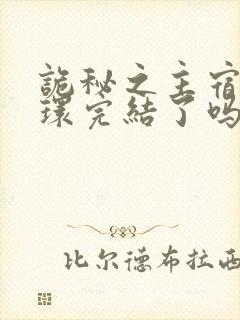 詭秘之主宿
環完結了嗎
比尔德布拉西